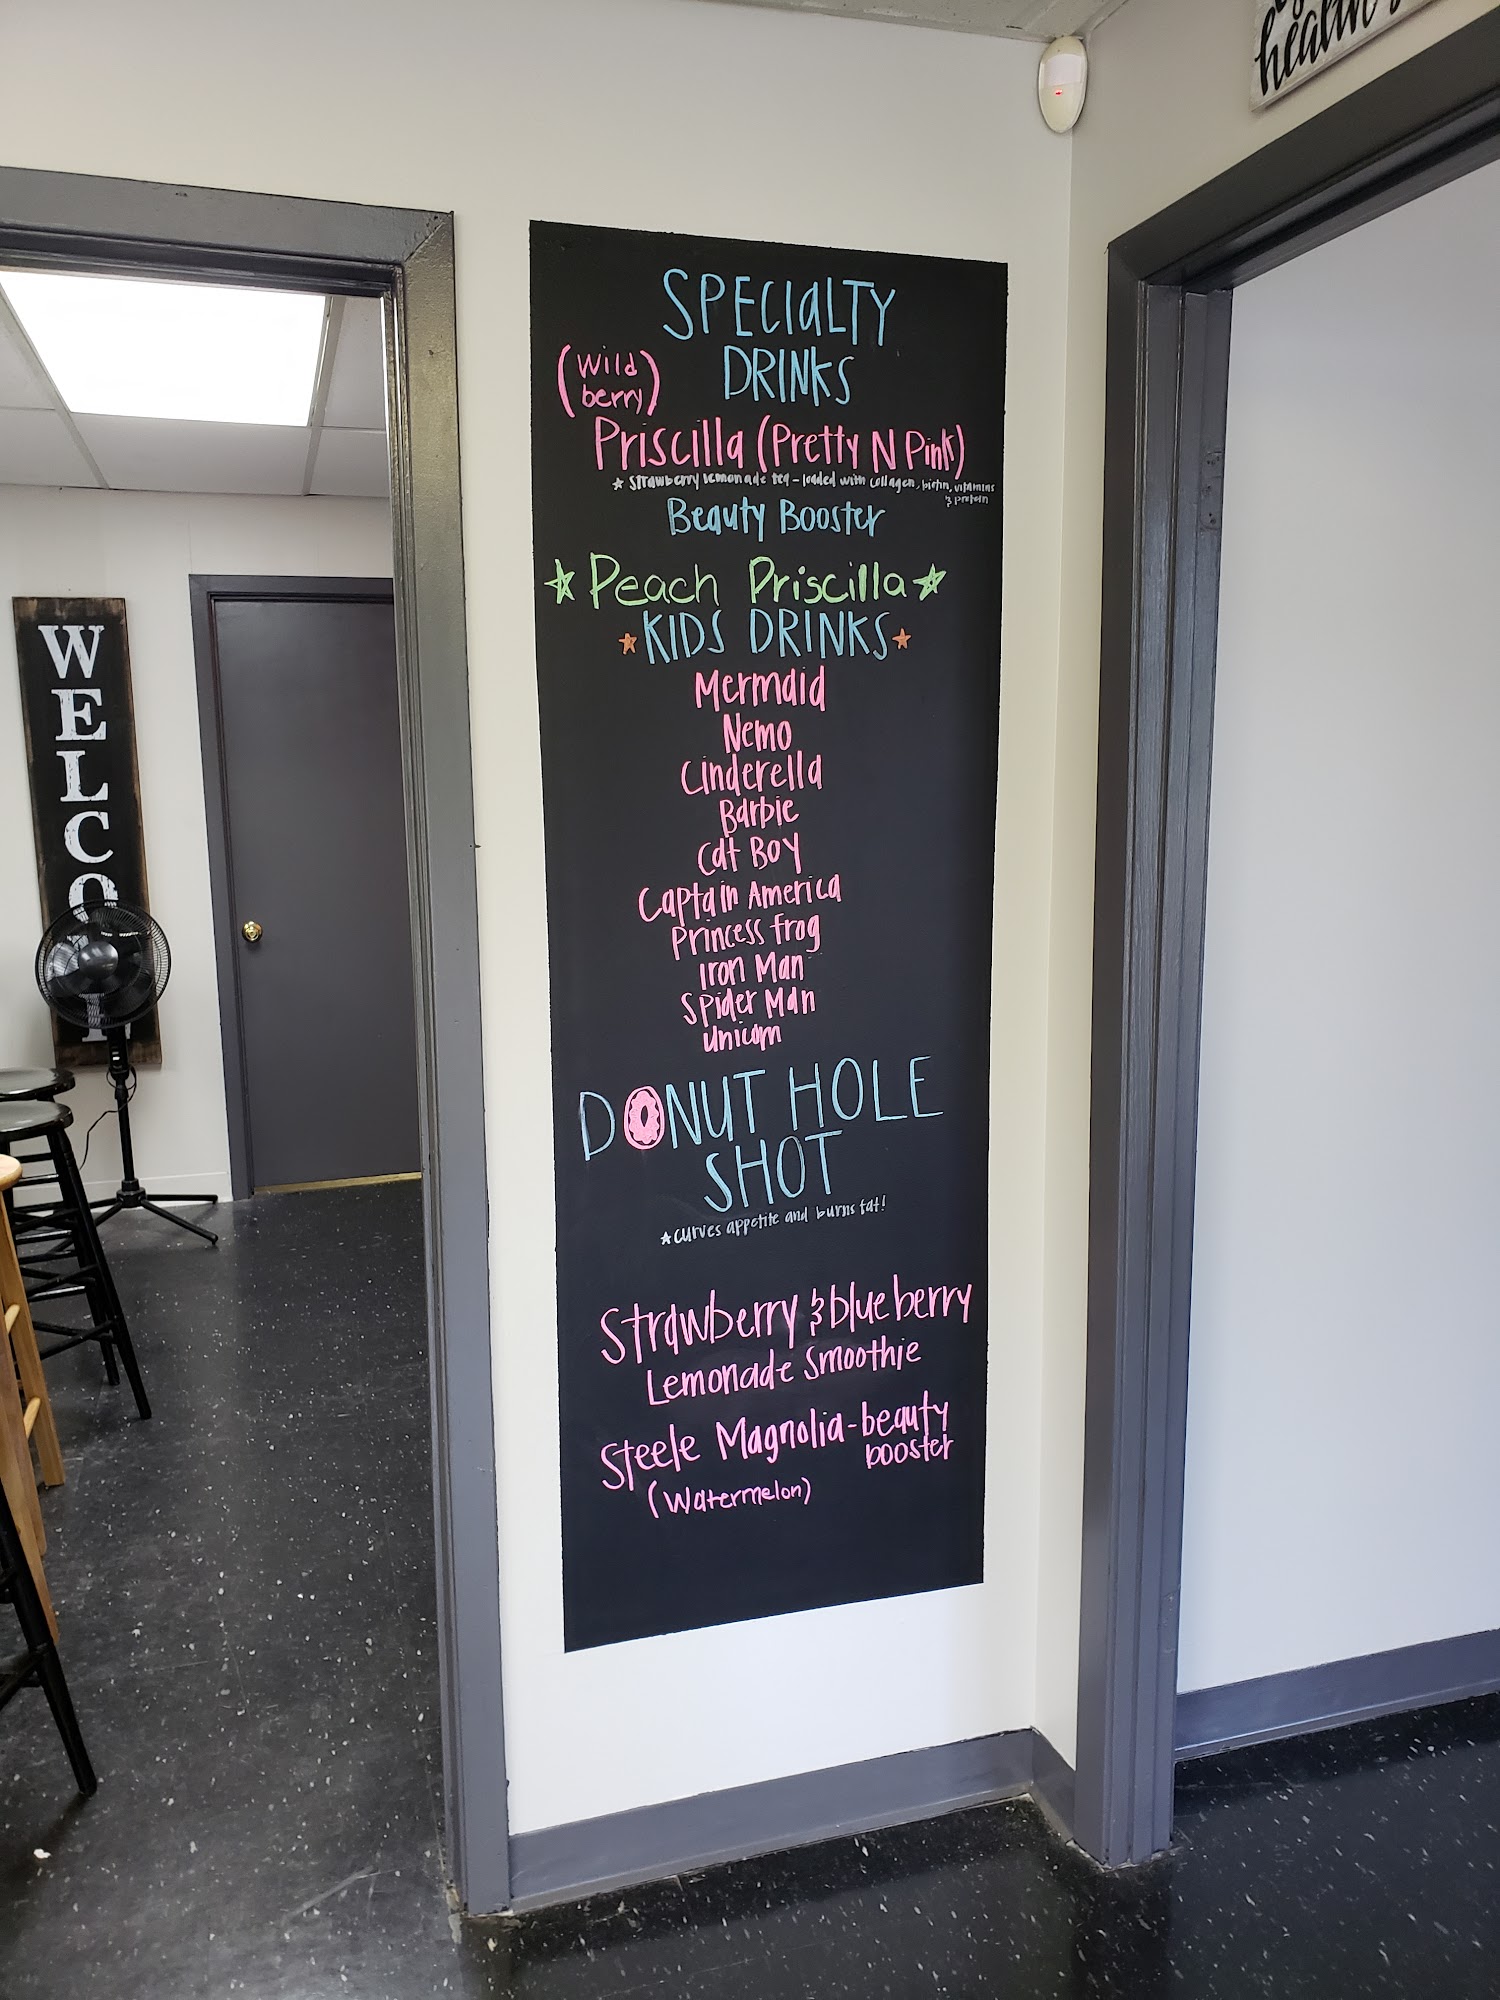 healthy
SPECIALTY
DRINKS
(Wild
berry)
Priscilla (Pretty N Pink)
★ Strawberry lemonade tea - loaded with collagen, biotin, vitamins
& protein
Beauty Booster
☆ Peach Priscilla ☆
★ KIDS DRINKS ★
Mermaid
Nemo
Cinderella
Barbie
Cat Boy
Captain America
Princess Frog
Iron Man
Spider Man
Unicorn
DONUT HOLE
SHOT
★ curves appetite and burns fat!
Strawberry & blueberry
Lemonade Smoothie
Steele Magnolia - beauty
booster
(Watermelon)
WELCOME